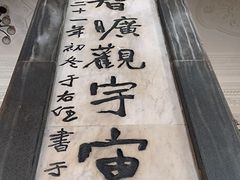 曠觀宇宙
三十一年初冬于右任書于